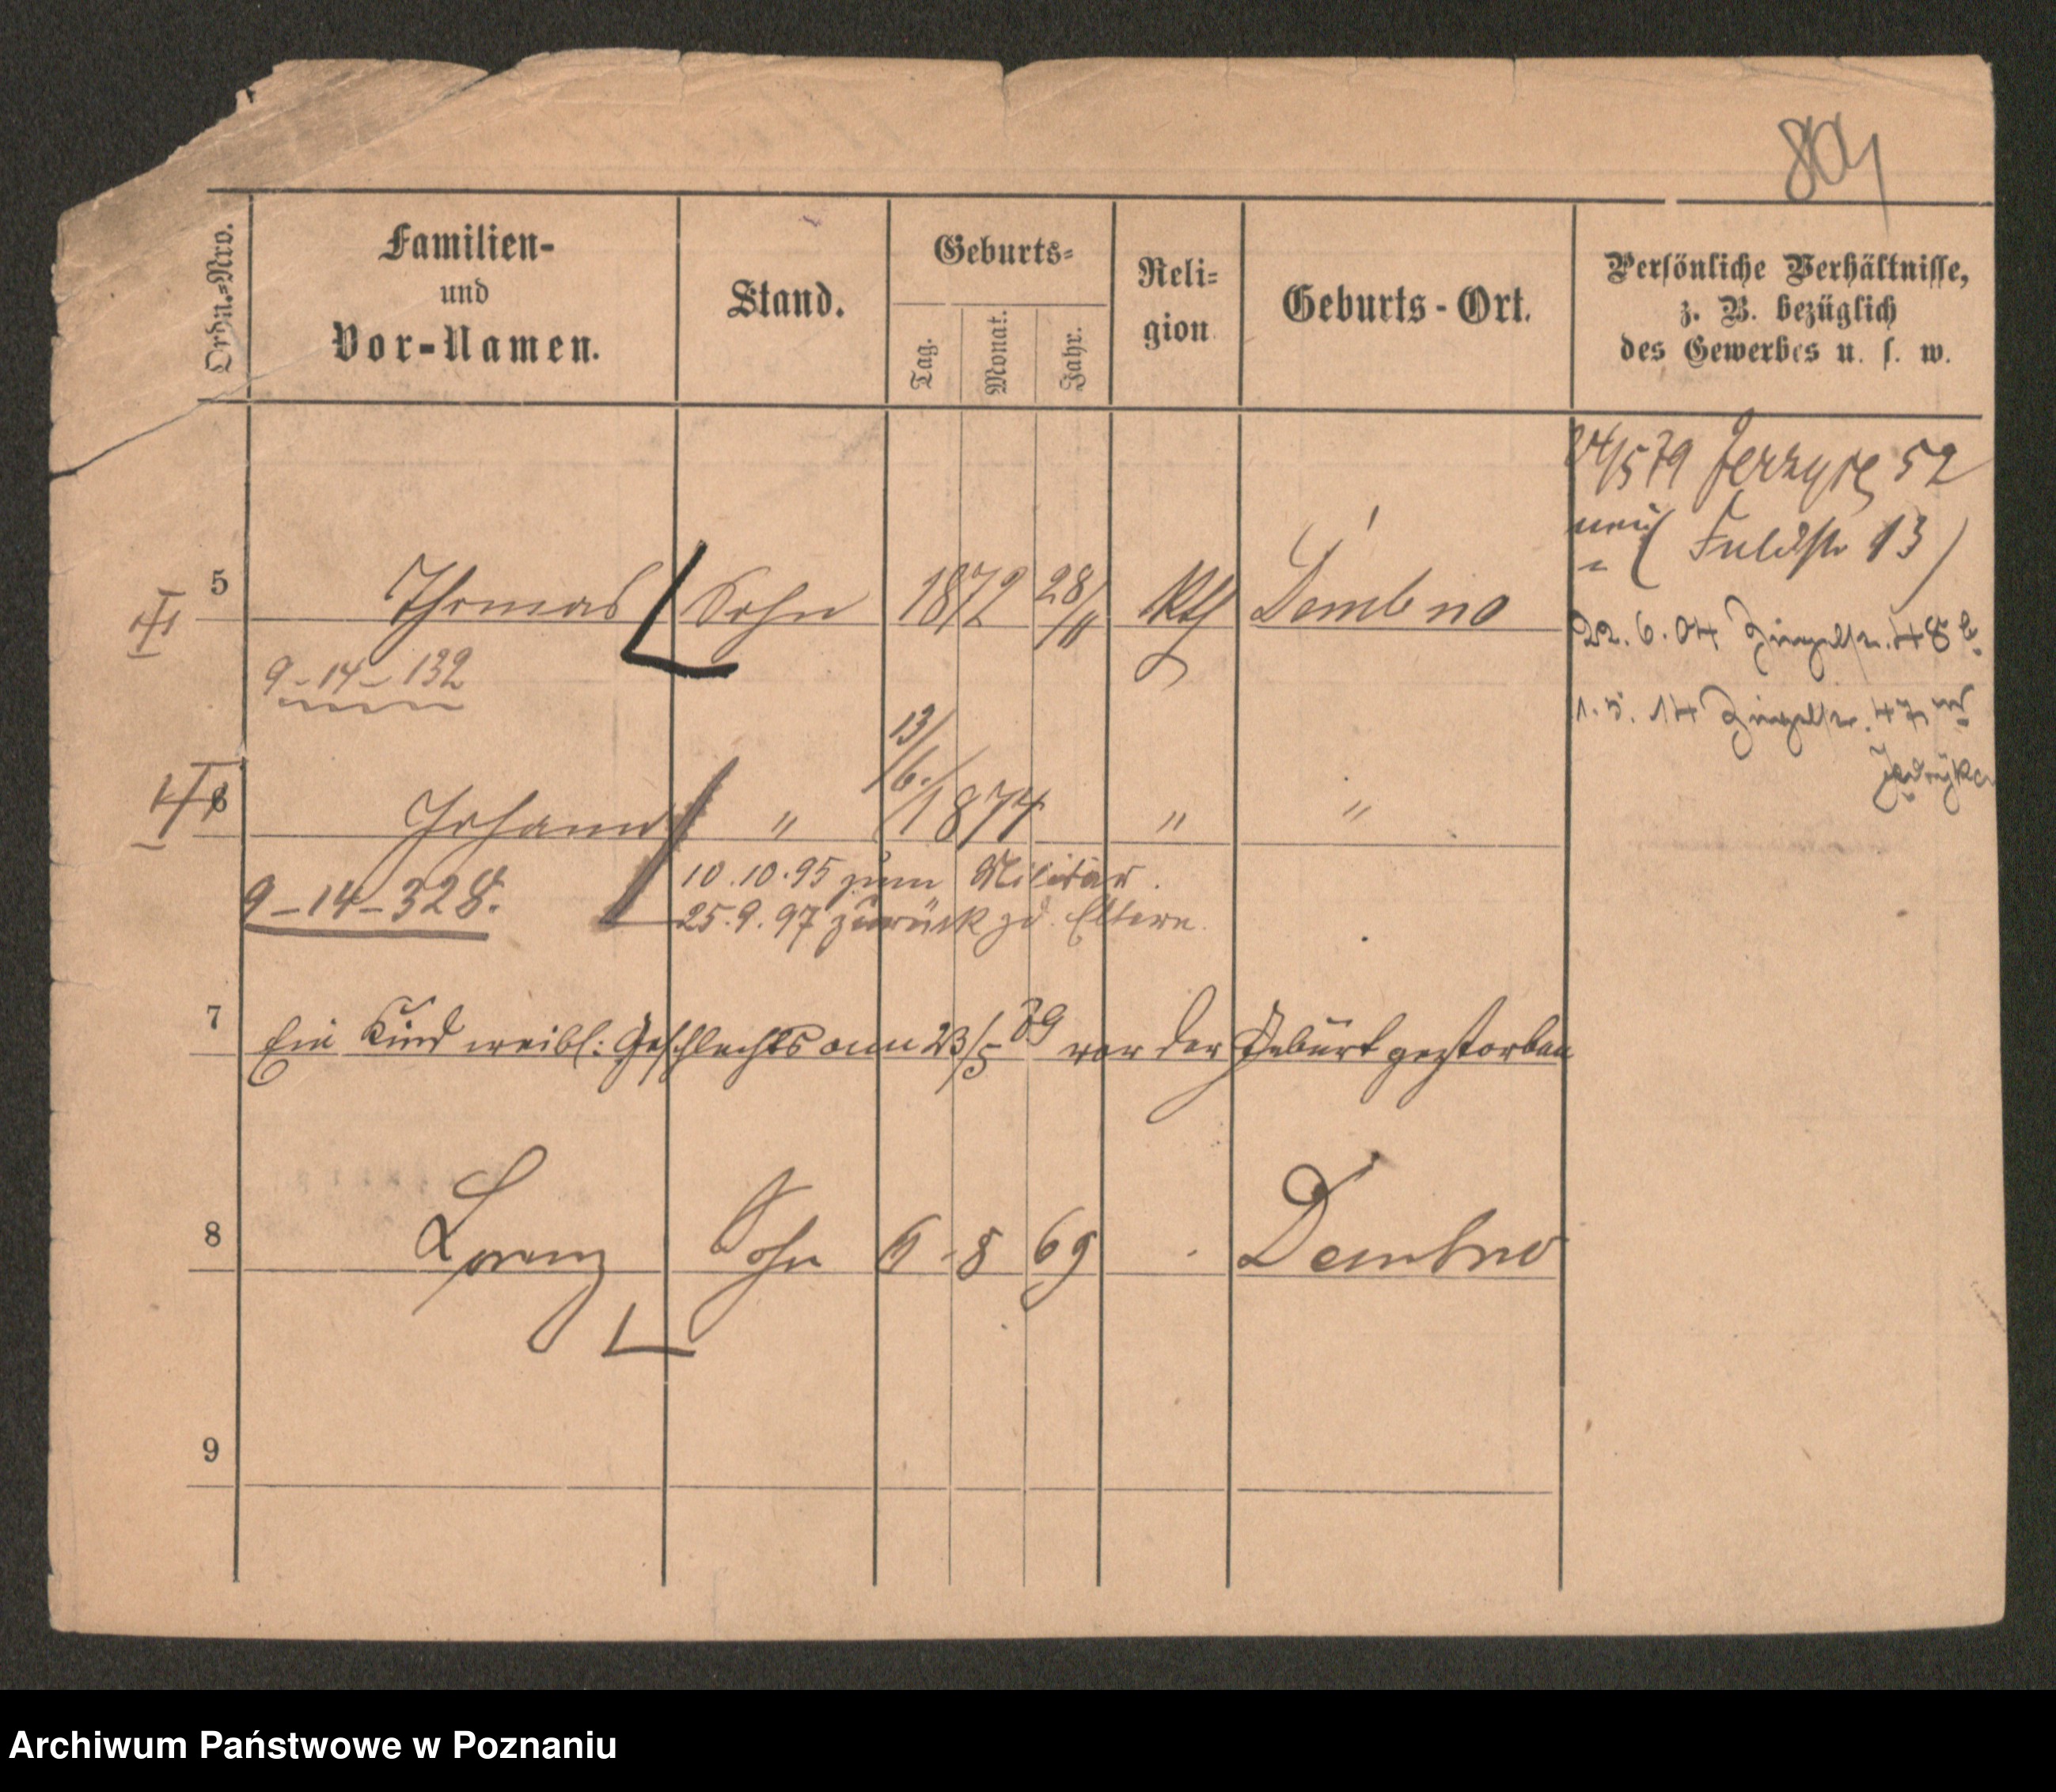 804
Ordn.-Nro.
Familien-
und
Vor-Namen.
Stand.
Geburts-
Tag.
Monat.
Jahr.
Reli-
gion
Geburts-Ort.
Persönliche Verhältnisse,
z. B. bezüglich
des Gewerbes u. s. w.
24/5 79 Jerzyce 52
neu (Feldstr 13)
5 Thomas Sohn 1872 28/11 Kth Dembno
22.6.04 Ziegelstr. 48
9-14-132
1.5.14 Ziegelstr. 47
13/6. 1874
6 Johann " " "
9-14-328.
10.10.95 zum Militär.
25.9.97 zurück z. d. Eltern.
7 Ein Kind weibl: Geschlechts am 23/5 89 vor der Geburt gestorben
8 Lorenz Sohn 6 8 69 Dembno
9
Archiwum Państwowe w Poznaniu